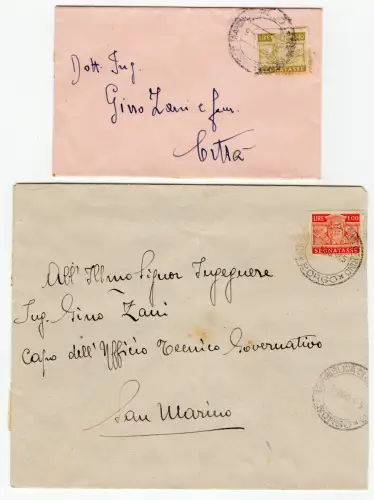 LIRE
SEGNATASSE
Dott. Ing.
Gino Zani e fam.
Città
LIRE 1.00
SEGNATASSE
BORGO
All' Ill.mo Signor Ingegnere
Ing. Gino Zani
Capo dell'Ufficio Tecnico Governativo
San Marino
REPUBBLICA
BORGO